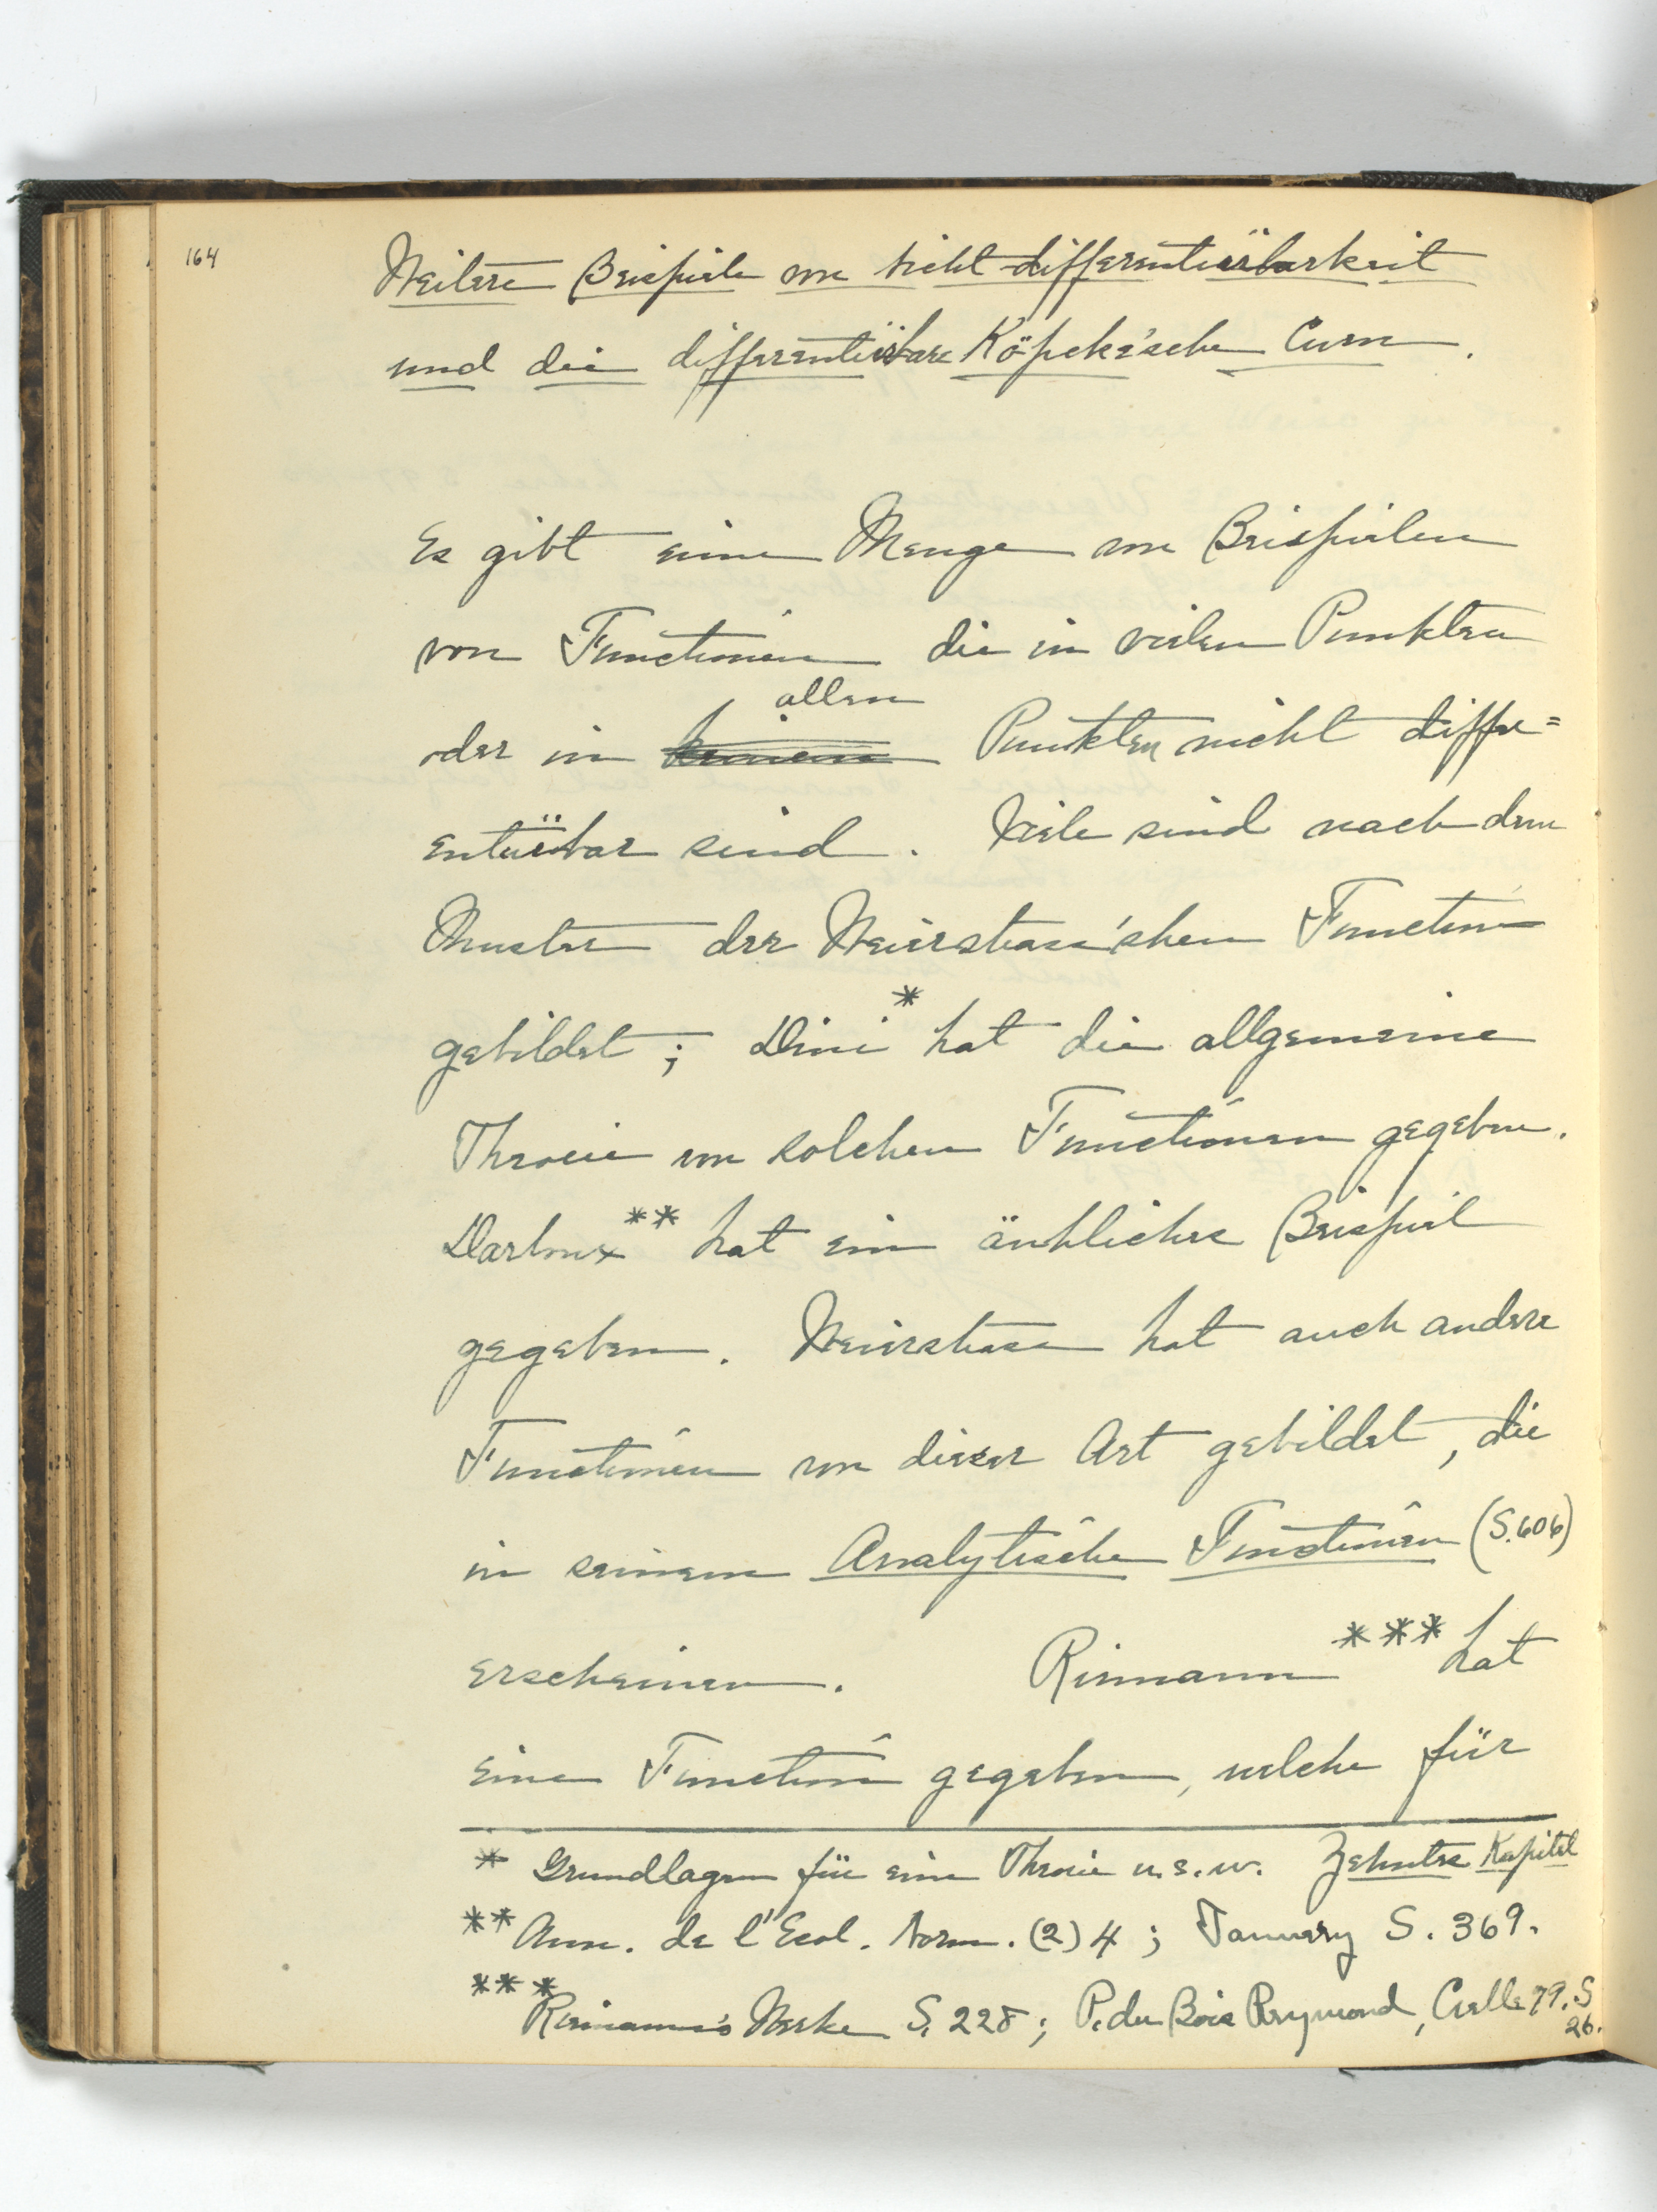 164
Weitere Beispiele von nicht-differentiïrbarkeit
und die differentiïrbare Köpcke'sche Curve.
Es gibt eine Menge von Beispielen
von Functionen die in vielen Punkten
allen
oder in keinem Punkten nicht diffe=
entiïrbar sind. Viele sind nach dem
Muster der Weierstrass'shen Function
gebildet; Dini* hat die allgemeine
Theorie von solchen Functionen gegeben.
Darboux** hat ein änhliches Beispiel
gegeben. Weierstrass hat auch andere
Functionen von dieser Art gebildet, die
in seinem Analytische Functionen (S. 606)
erscheinen. Riemann*** hat
eine Function gegeben, welche für
* Grundlagen für eine Theorie u.s.w. Zehntes Kapitel
** Ann. de l'Ecol. Norm. (2) 4; Tannery S. 369.
*** Riemann's Werke S. 228; P. du Bois Reymond, Crelle 79. S
26.